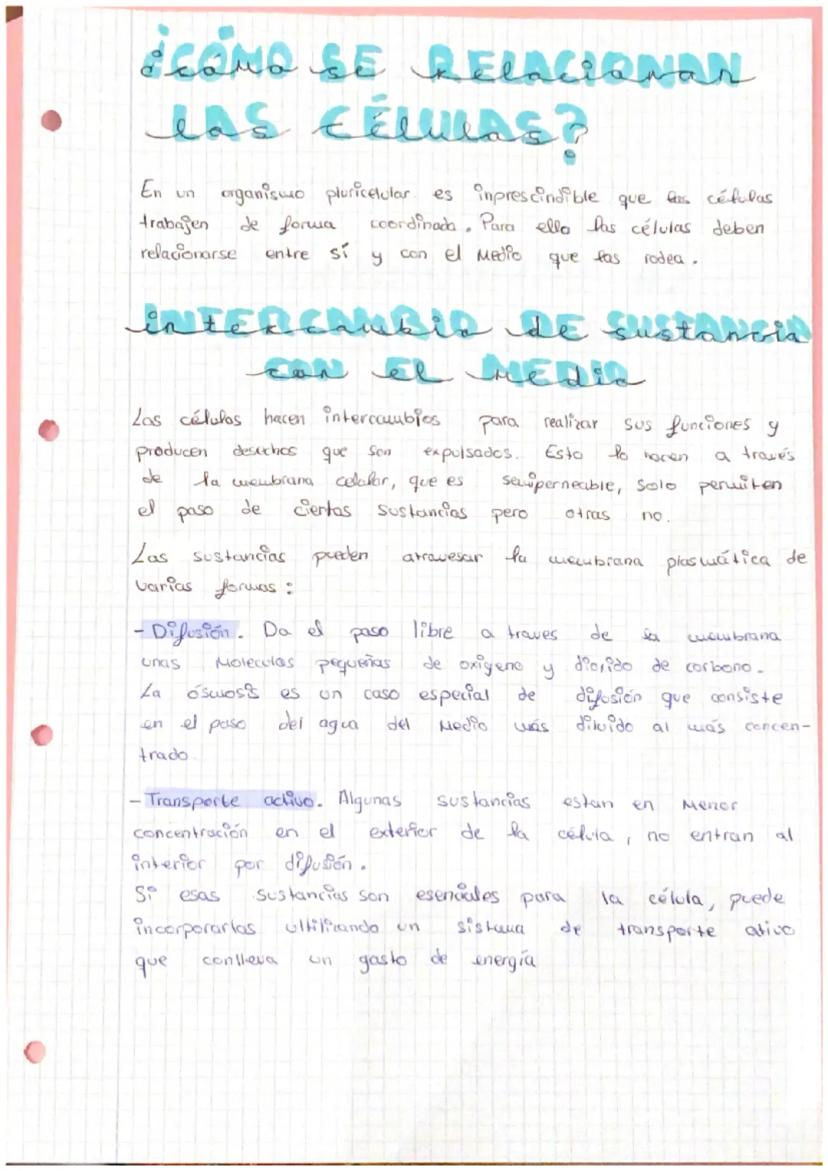 ¿CÓMO SE RELACIONAN
LAS CÉLULAS?
En un organismo pluricelular es inprescindible que las células
trabajen de forma coordinada. Para ello las células deben
relacionarse entre sí y con el medio que las rodea.
INTERCAMBIO DE SUSTANCIA
CON EL MEDIO
Las células hacen intercambios para realizar sus funciones y
producen desechos que son expulsados. Esto lo hacen a través
de la membrana celular, que es semipermeable, solo permiten
el paso de ciertas sustancias pero otras no.
Las sustancias pueden atravesar la membrana plasmática de
varias formas:
- Difusión. Da el paso libre a traves de la membrana
unas moleculas pequeñas de oxigeno y dioxido de carbono.
La ósmosis es un caso especial de difusión que consiste
en el paso del agua del medio más diluido al más concen-
trado
- Transporte activo. Algunas sustancias estan en menor
concentración en el exterior de la célula, no entran al
interior por difusión.
Si esas sustancias son esenciales para la célula, puede
incorporarlas ultilizando un sistema de transporte ativo
que conlleva un gasto de energía